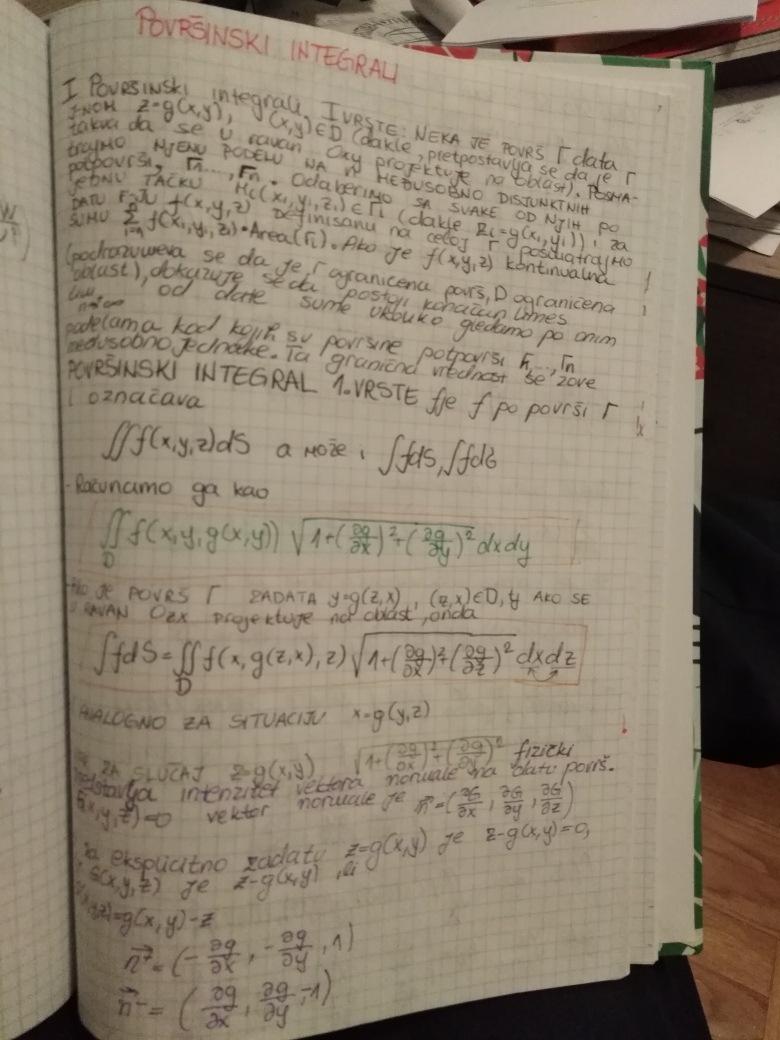 POVRŠINSKI INTEGRALI
I Površinski integrali I VRSTE: NEKA JE POVRŠ Γ data
z=g(x,y), (x,y)∈D (dakle, pretpostavlja se da je Γ
takva da se u ravan Oxy projektuje na oblast). POSMA-
TRAJMO NJENU PODELU NA n MEĐUSOBNO DISJUNKTNIH
potpovrši, Γ₁,...,Γₙ. Odaberimo SA SVAKE OD NJIH po
JEDNU TAČKU Mᵢ(xᵢ,yᵢ,zᵢ)∈Γᵢ (dakle zᵢ=g(xᵢ,yᵢ)), i za
DATU F-JU f(x,y,z) Definisanu na celoj Γ posmatrajmo
SUMU Σ f(xᵢ,yᵢ,zᵢ)·Area(Γᵢ). Ako je f(x,y,z) kontinualna
(podrazumeva se da je Γ ograničena površ, D ograničena
oblast), dokazuje se da postoji konačan limes
lim n→∞ od date sume ukoliko gledamo po onim
podelama kod kojih su površine potpovrši Γ₁,...,Γₙ
međusobno jednake. Ta granična vrednost se zove
POVRŠINSKI INTEGRAL 1. VRSTE fje f po površi Γ
i označava
∬f(x,y,z)dS a može i ∫fdS, ∫fdσ
-Računamo ga kao
∬_D f(x,y,g(x,y)) √(1+(∂g/∂x)²+(∂g/∂y)²) dxdy
-Ako JE POVRŠ Γ ZADATA y=g(z,x), (z,x)∈D, tj AKO SE
U RAVAN Ozx projektuje na oblast, onda
∫fdS=∬_D f(x,g(z,x),z) √(1+(∂g/∂x)²+(∂g/∂z)²) dxdz
ANALOGNO ZA SITUACIJU x=g(y,z)
ZA SLUČAJ z=g(x,y) √(1+(∂g/∂x)²+(∂g/∂y)²) fizički
predstavlja intenzitet vektora normale na datu površ.
G(x,y,z)=0 vektor normale je n⃗=(∂G/∂x, ∂G/∂y, ∂G/∂z)
Za eksplicitno zadatu z=g(x,y) je z-g(x,y)=0,
G(x,y,z) je z-g(x,y), ili
G(x,y,z)=g(x,y)-z
n⃗⁺=(-∂g/∂x, -∂g/∂y, 1)
n⃗⁻=(∂g/∂x, ∂g/∂y, -1)